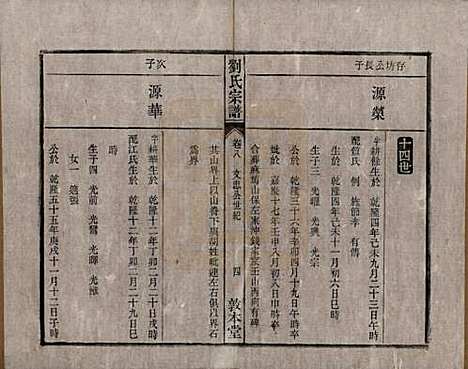 十四世
存坊公長子
源榮
字耕餘生於 乾隆四年己未九月二十三日午時
配 氏 例 施節孝 有傳
生於 乾隆四年己未十一月初六日巳時
生子三 光曜 光典 光宗
公歿於 乾隆三十六年辛卯八月十九日午時
歿於 嘉慶十七年壬申八月初八日申時卒
合葬麻蔦山保左東沖錢 家王山西向有碑
劉氏宗譜
卷八 文忠公世紀
四
敦本堂
其山界上以山脊下與胡姓毗連左俱以界石
為界
次子
源華
字耕華生於 乾隆十二年丁卯二月二十日戌時
配江氏生於 乾隆十二年丁卯二月二十九日巳
時
生子四 光前 光鸞 光暉 光惟
女一 適張
公於 乾隆五十五年庚戌十一月十二日子時